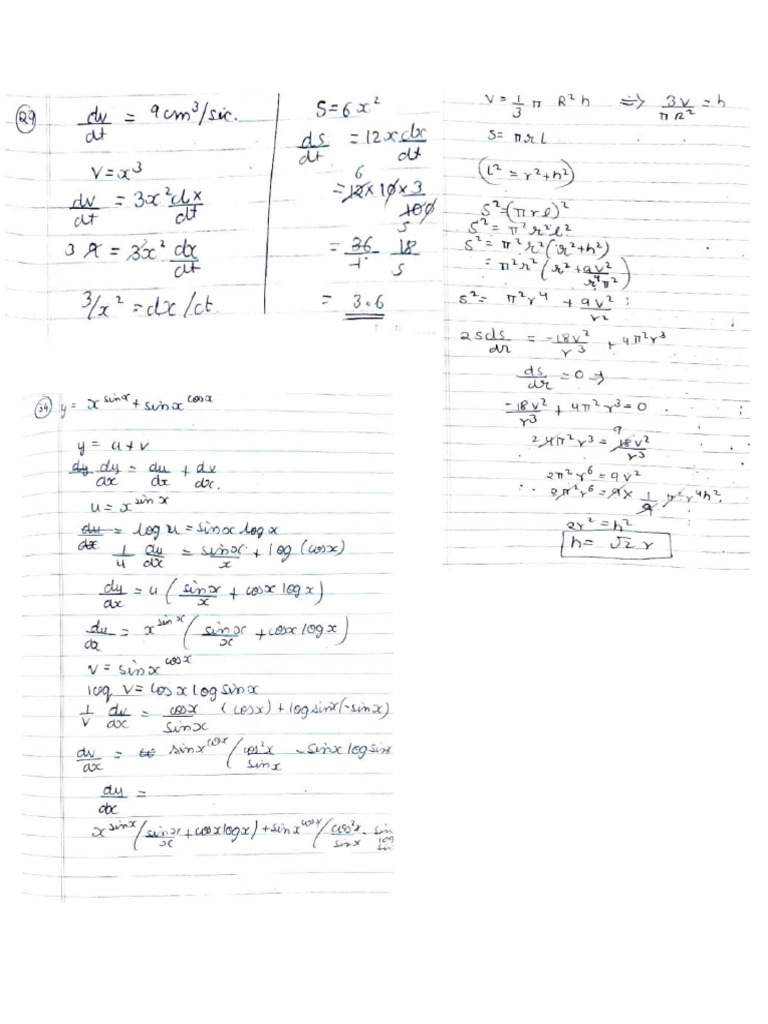 29) dv/dt = 9cm³/sec.
V = x³
dv/dt = 3x² dx/dt
3 9 = 3x² dx/dt
3/x² = dx/dt.
S = 6x²
ds/dt = 12x dx/dt
6
= 12 × 10 × 3/100
5
= 36/1 18/5
= 3.6
V = 1/3 π R²h ⇒ 3V/πR² = h
S = πrl
(l² = r² + h²)
S² = (πrl)²
S² = π²r²l²
S² = π²r²(r² + h²)
= π²r²(r² + 9v²/r⁴π²)
S² = π²r⁴ + 9v²/r²
2s ds/dr = -18v²/r³ + 4π²r³
ds/dr = 0 ⇒
-18v²/r³ + 4π²r³ = 0
2 4π²r³ = 9 18v²/r³
2π²r⁶ = 9v²
∴ 2π²r⁶ = 9 × 1/9 π²r⁴h²
2r² = h²
h = √2 r
34) y = x^sinx + sinx^cosx
y = u + v
dy dy/dx = du/dx + dv/dx.
u = x^sinx
du/dx = log u = sinx log x
1/u du/dx = sinx/x + log (cosx)
dy/dx = u (sinx/x + cosx log x)
du/dx = x^sinx (sinx/x + cosx log x)
V = sinx^cosx
log V = cosx log sinx
1/V dv/dx = cosx/sinx (cosx) + log sinx (-sinx)
dv/dx = sinx^cosx (cos²x/sinx - sinx log sinx
dy/dx =
x^sinx (sinx/x + cosx log x) + sinx^cosx (cos²x/sinx - sin log sin